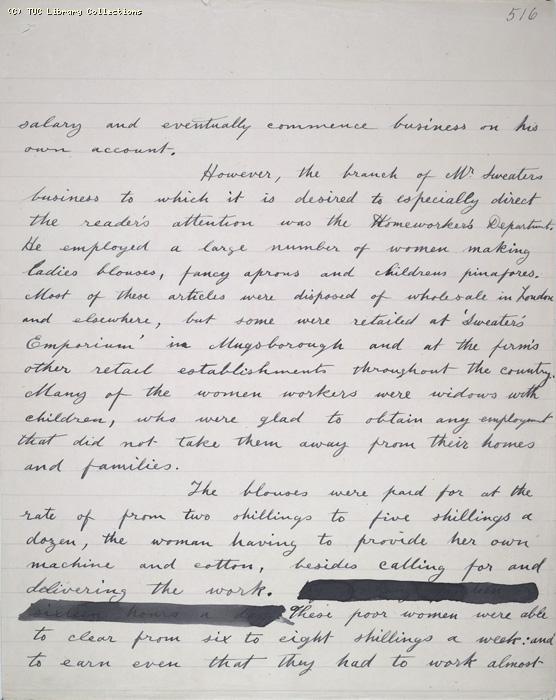 (C) TUC Library Collections
516
salary and eventually commence business on his
own account.
However, the branch of Mr Sweaters
business to which it is desired to especially direct
the reader's attention was the Homeworkers Departmt.
He employed a large number of women making
ladies blouses, fancy aprons and childrens pinafores.
Most of these articles were disposed of wholesale in London
and elsewhere, but some were retailed at 'Sweater's
Emporium' in Mugsborough and at the firm's
other retail establishments throughout the country.
Many of the women workers were widows with
children, who were glad to obtain any employmt
that did not take them away from their homes
and families.
The blouses were paid for at the
rate of from two shillings to five shillings a
dozen, the woman having to provide her own
machine and cotton, besides calling for and
delivering the work.
sixteen hours a day These poor women were able
to clear from six to eight shillings a week: and
to earn even that they had to work almost